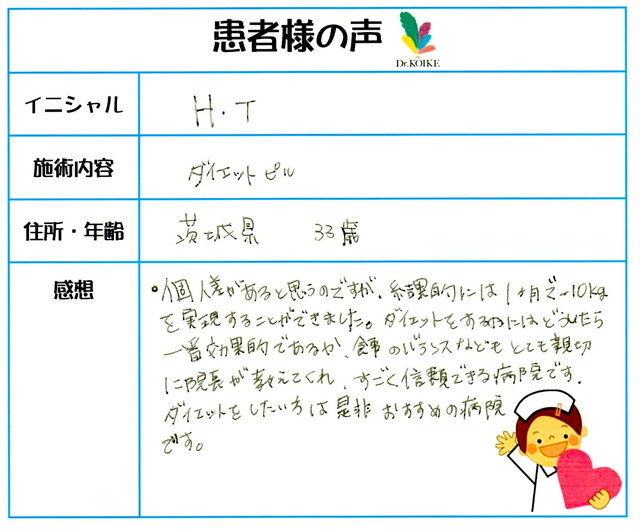 患者様の声
Dr.KOIKE
イニシャル
H.T
施術内容
ダイエットピル
住所・年齢
茨城県 33歳
感想
・個人差があると思うのですが、結課的には1ヶ月で-10kg
を実現することができました。ダイエットをする為にはどうしたら
一番効果的であるか、食事のバランスなどもとても親切
に院長が教えてくれ、すごく信頼できる病院です.
ダイエットをしたい方は是非おすすめの病院
です。